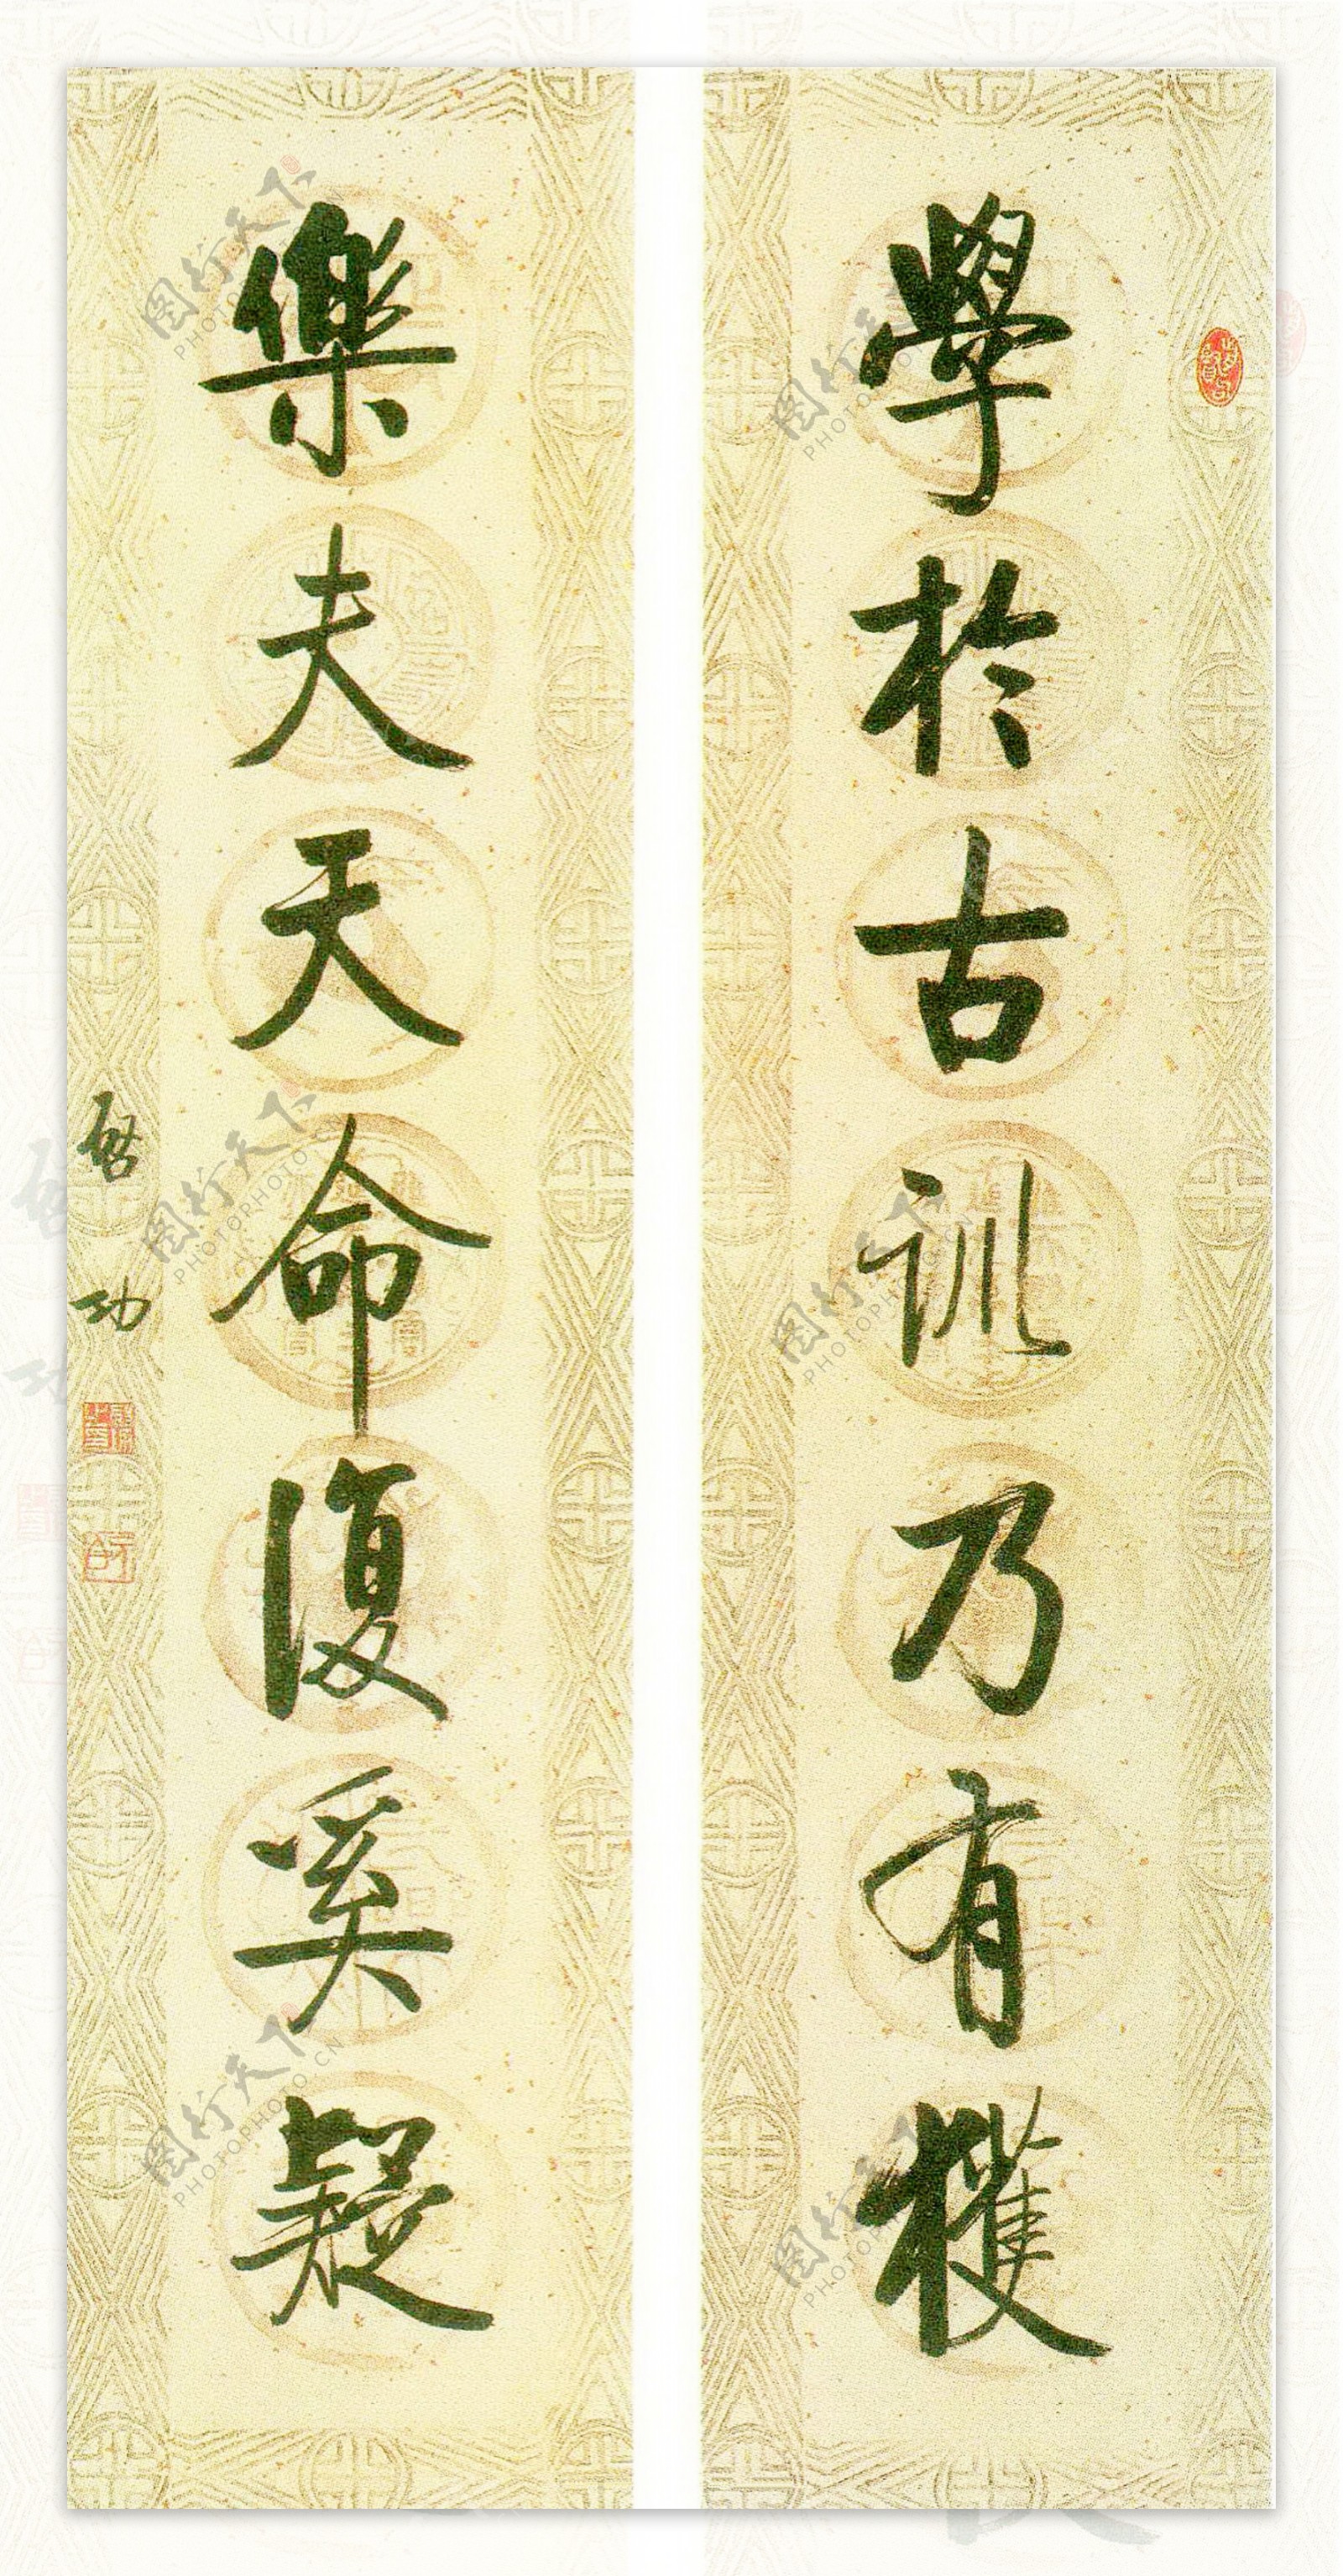 學於古訓乃有獲
樂夫天命復奚疑
啓功
图行天下
PHOTOPHOTO.CN